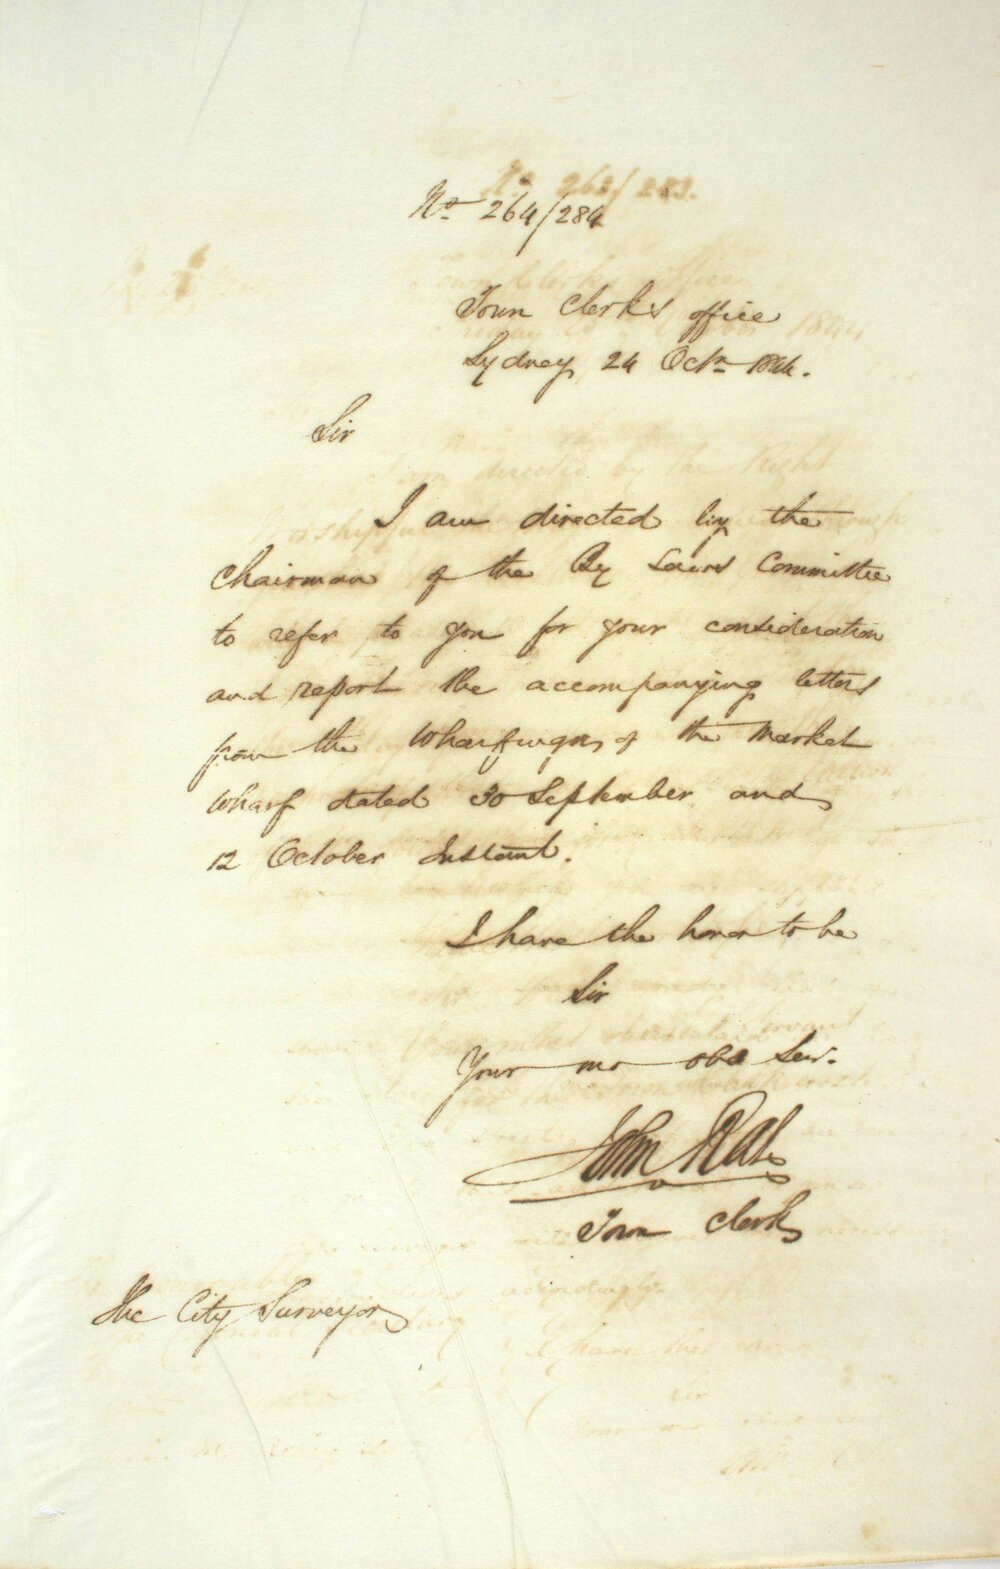 No 264/284
Town Clerk's office
Sydney 24 Octr 1844.
Sir
I am directed by the
Chairman of the By Laws Committee
to refer to you for your consideration
and report the accompanying letters
from the Wharfinger of the Market
Wharf dated 30 September and
12 October Instant.
I have the honor to be
Sir
Your mo obd Ser.
John Rae
Town Clerk
The City Surveyor